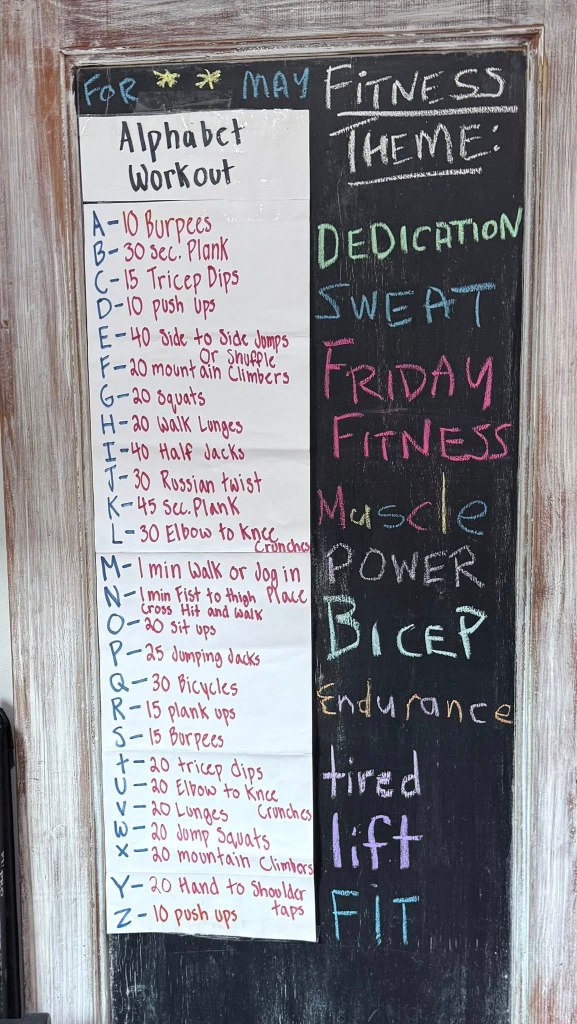 FOR * * MAY
FITNESS
THEME:
Alphabet
Workout
A-10 Burpees
B-30 sec. Plank
C-15 Tricep Dips
D-10 push ups
E-40 Side to Side Jumps
Or Shuffle
F-20 mountain Climbers
G-20 Squats
H-20 Walk Lunges
I-40 Half Jacks
J-30 Russian twist
K-45 Sec. Plank
L-30 Elbow to Knee
Crunches
M-1 min Walk or Jog in
Place
N-1 min Fist to thigh
Cross Hit and Walk
O-20 sit ups
P-25 Jumping Jacks
Q-30 Bicycles
R-15 plank ups
S-15 Burpees
t-20 tricep dips
U-20 Elbow to Knee
Crunches
V-20 Lunges
W-20 Jump Squats
X-20 mountain Climbers
Y-20 Hand to Shoulder
taps
Z-10 push ups
DEDICATION
SWEAT
FRIDAY
FITNESS
Muscle
POWER
BICEP
Endurance
tired
lift
FIT